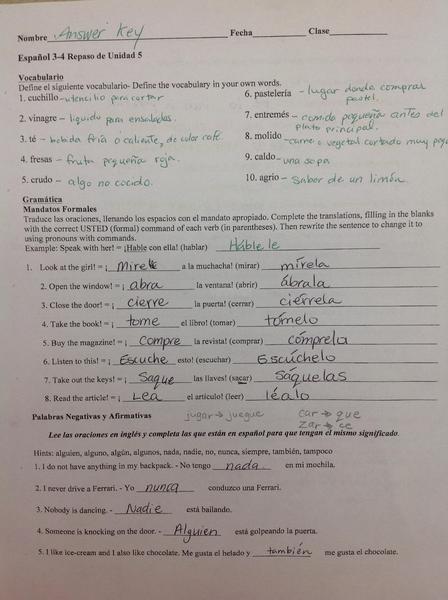 Nombre Answer Key Fecha Clase
Español 3-4 Repaso de Unidad 5
Vocabulario
Define el siguiente vocabulario- Define the vocabulary in your own words.
1. cuchillo – utencilio para cortar
6. pastelería – lugar donde compras pastel.
2. vinagre – liquido para ensaladas.
7. entremés – comida pequeña antes del plato principal.
3. té – bebida fría o caliente, de color café
8. molido – carne o vegetal cortado muy peq
4. fresas – fruta pequeña roja.
9. caldo – una sopa
5. crudo – algo no cocido.
10. agrio – sabor de un limón.
Gramática
Mandatos Formales
Traduce las oraciones, llenando los espacios con el mandato apropiado. Complete the translations, filling in the blanks
with the correct USTED (formal) command of each verb (in parentheses). Then rewrite the sentence to change it to
using pronouns with commands.
Example: Speak with her! = ¡Hable con ella! (hablar) Háblele
1. Look at the girl! = ¡ Mire a la muchacha! (mirar) mírela
2. Open the window! = ¡ abra la ventana! (abrir) ábrala
3. Close the door! = ¡ cierre la puerta! (cerrar) ciérrela
4. Take the book! = ¡ tome el libro! (tomar) tómelo
5. Buy the magazine! = ¡ compre la revista! (comprar) cómprela
6. Listen to this! = ¡ Escuche esto! (escuchar) Escúchelo
7. Take out the keys! = ¡ Saque las llaves! (sacar) Sáquelas
8. Read the article! = ¡ Lea el artículo! (leer) léalo
Palabras Negativas y Afirmativas jugar → juegue car → que
zar → ce
Lee las oraciones en inglés y completa las que están en español para que tengan el mismo significado.
Hints: alguien, alguno, algún, algunos, nada, nadie, no, nunca, siempre, también, tampoco
1. I do not have anything in my backpack. - No tengo nada. en mi mochila.
2. I never drive a Ferrari. - Yo nunca conduzco una Ferrari.
3. Nobody is dancing. - Nadie está bailando.
4. Someone is knocking on the door. - Alguien está golpeando la puerta.
5. I like ice-cream and I also like chocolate. Me gusta el helado y también me gusta el chocolate.